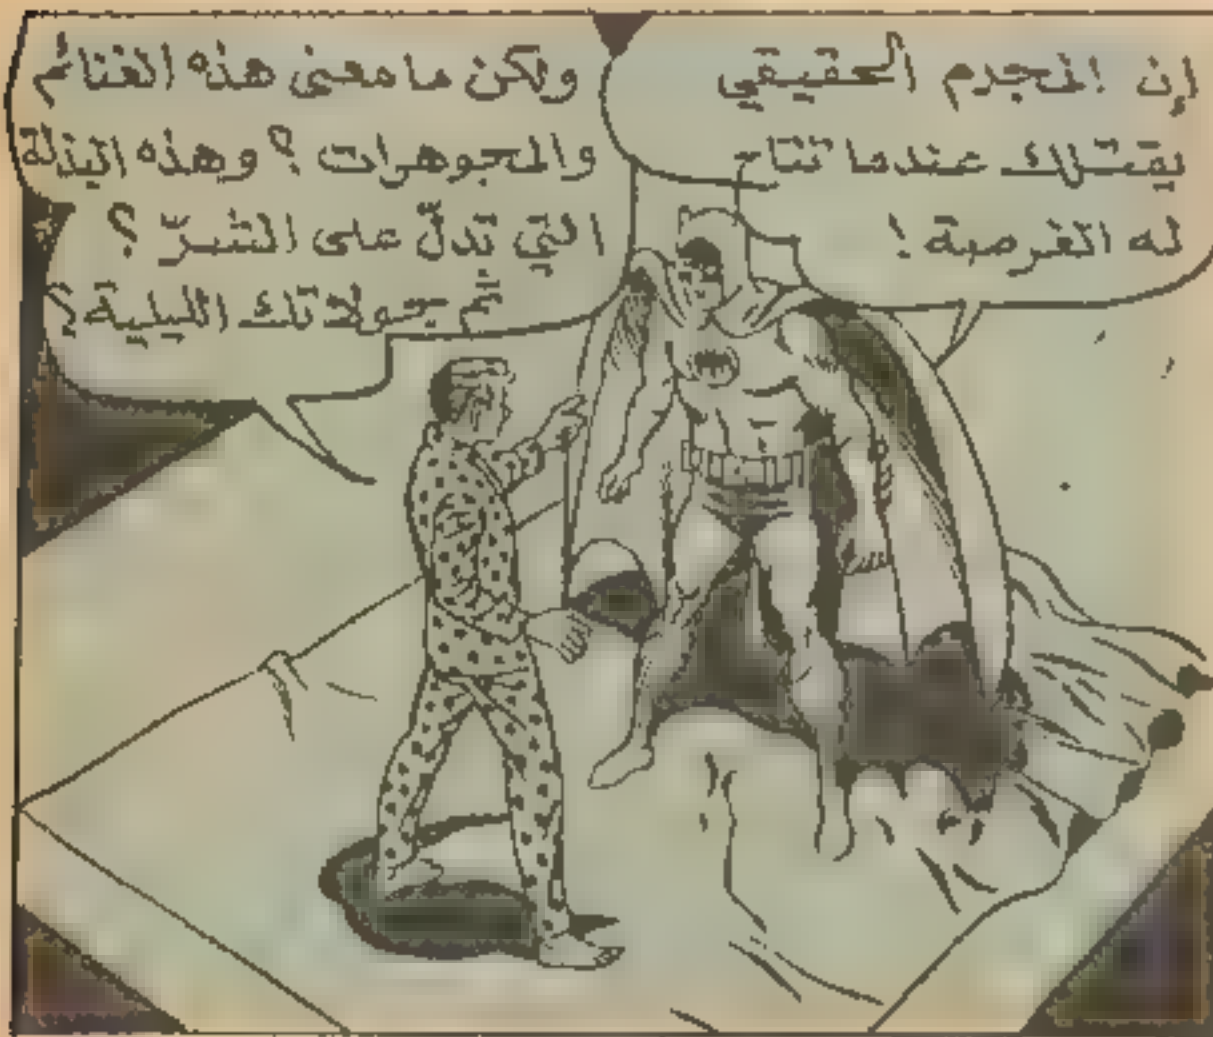 إن المجرم الحقيقي
يقتلك عندما تتاح
له الفرصة !
ولكن ما معنى هذه الغنائم
والمجوهرات ؟ وهذه البذلة
التي تدلّ على الشرّ ؟
ثم جولاتك الليلية ؟